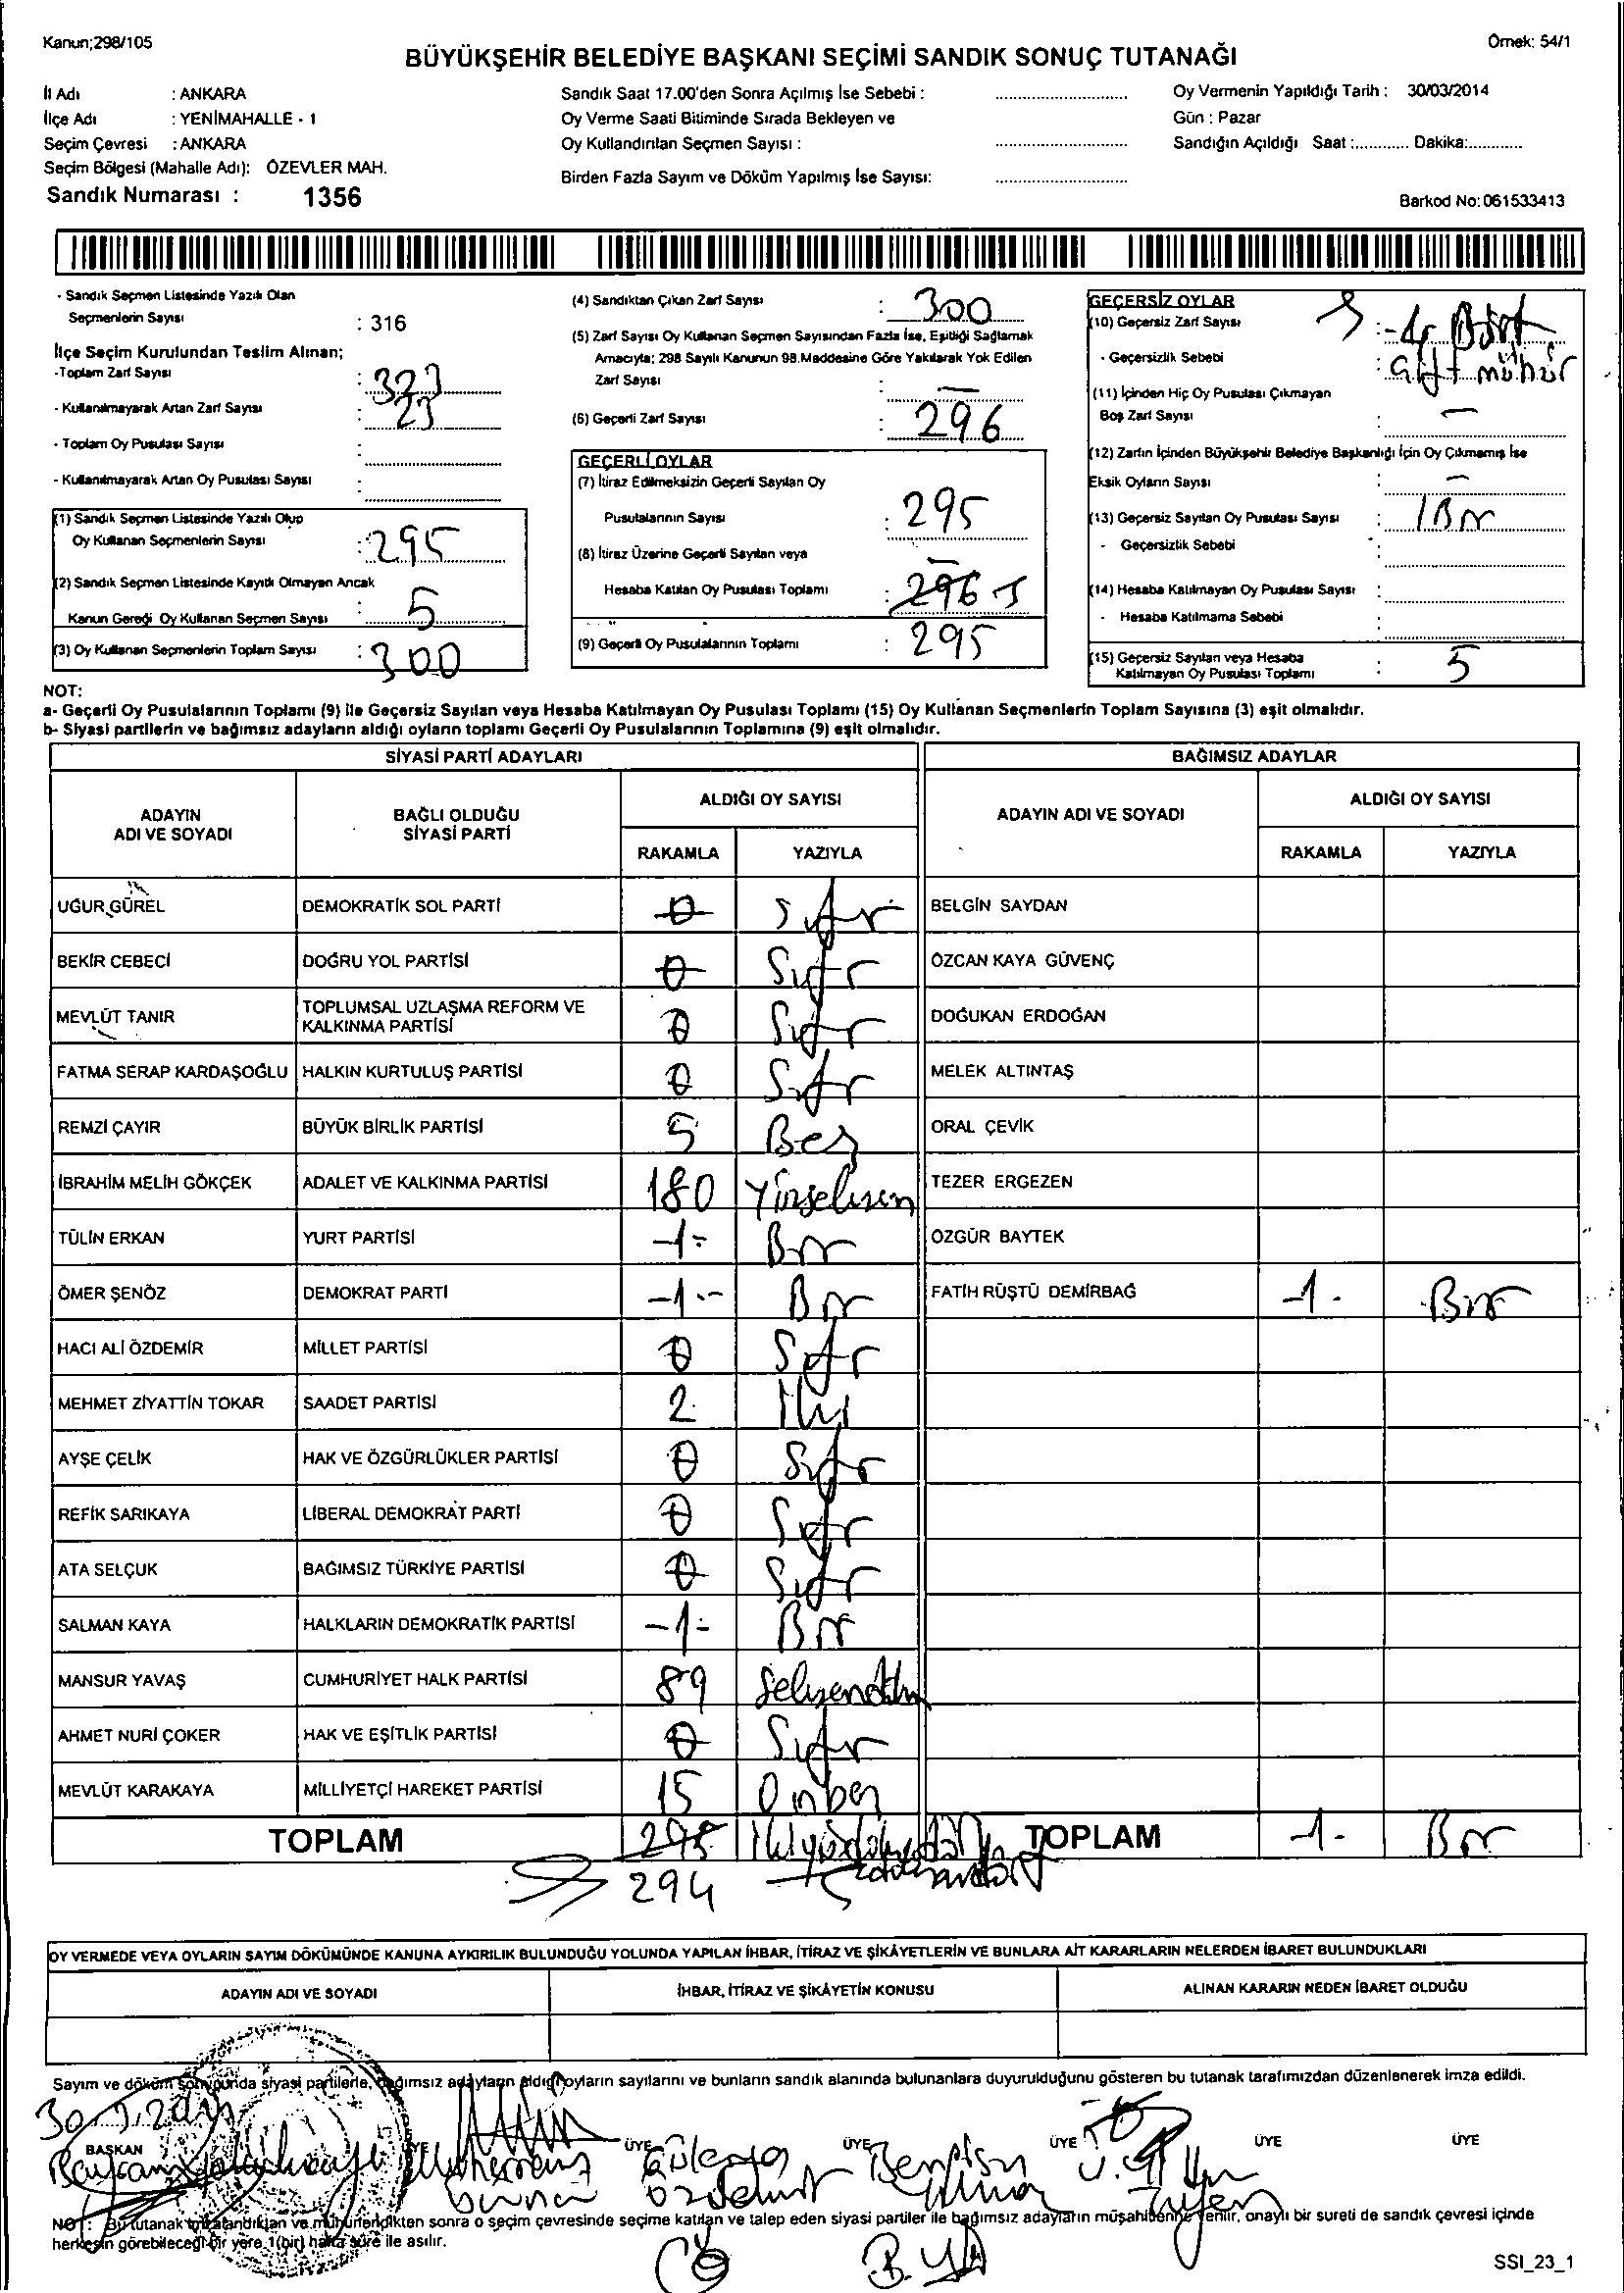 Kanun;298/105
Örnek: 54/1
BÜYÜKŞEHİR BELEDİYE BAŞKANI SEÇİMİ SANDIK SONUÇ TUTANAĞI
İl Adı : ANKARA
İlçe Adı : YENİMAHALLE - 1
Seçim Çevresi : ANKARA
Seçim Bölgesi (Mahalle Adı): ÖZEVLER MAH.
Sandık Numarası : 1356
Sandık Saat 17.00'den Sonra Açılmış İse Sebebi :
Oy Verme Saati Bitiminde Sırada Bekleyen ve
Oy Kullandırılan Seçmen Sayısı :
Birden Fazla Sayım ve Döküm Yapılmış İse Sayısı:
Oy Vermenin Yapıldığı Tarih : 30/03/2014
Gün : Pazar
Sandığın Açıldığı Saat :............ Dakika:............
Barkod No:061533413
- Sandık Seçmen Listesinde Yazılı Olan
Seçmenlerin Sayısı : 316
İlçe Seçim Kurulundan Teslim Alınan;
-Toplam Zarf Sayısı : 323
- Kullanılmayarak Artan Zarf Sayısı : 23
- Toplam Oy Pusulası Sayısı :
- Kullanılmayarak Artan Oy Pusulası Sayısı :
(1) Sandık Seçmen Listesinde Yazılı Olup
Oy Kullanan Seçmenlerin Sayısı : 295
(2) Sandık Seçmen Listesinde Kayıtlı Olmayan Ancak
Kanun Gereği Oy Kullanan Seçmen Sayısı : 5
(3) Oy Kullanan Seçmenlerin Toplam Sayısı : 300
(4) Sandıktan Çıkan Zarf Sayısı : 300
(5) Zarf Sayısı Oy Kullanan Seçmen Sayısından Fazla İse, Eşitliği Sağlamak
Amacıyla; 298 Sayılı Kanunun 98.Maddesine Göre Yakılarak Yok Edilen
Zarf Sayısı : —
(6) Geçerli Zarf Sayısı : 296
GEÇERLİ OYLAR
(7) İtiraz Edilmeksizin Geçerli Sayılan Oy
Pusulalarının Sayısı : 295
(8) İtiraz Üzerine Geçerli Sayılan veya
Hesaba Katılan Oy Pusulası Toplamı : 296
(9) Geçerli Oy Pusulalarının Toplamı : 295
GEÇERSİZ OYLAR
(10) Geçersiz Zarf Sayısı : -4 Dört
- Geçersizlik Sebebi : çift mühür
(11) İçinden Hiç Oy Pusulası Çıkmayan
Boş Zarf Sayısı : —
(12) Zarfın İçinden Büyükşehir Belediye Başkanlığı İçin Oy Çıkmamış İse
Eksik Oyların Sayısı : —
(13) Geçersiz Sayılan Oy Pusulası Sayısı : 1 Bir
- Geçersizlik Sebebi :
(14) Hesaba Katılmayan Oy Pusulası Sayısı :
- Hesaba Katılmama Sebebi :
(15) Geçersiz Sayılan veya Hesaba
Katılmayan Oy Pusulası Toplamı : 5
NOT:
a- Geçerli Oy Pusulalarının Toplamı (9) ile Geçersiz Sayılan veya Hesaba Katılmayan Oy Pusulası Toplamı (15) Oy Kullanan Seçmenlerin Toplam Sayısına (3) eşit olmalıdır.
b- Siyasi partilerin ve bağımsız adayların aldığı oyların toplamı Geçerli Oy Pusulalarının Toplamına (9) eşit olmalıdır.
SİYASİ PARTİ ADAYLARI
BAĞIMSIZ ADAYLAR
ADAYIN ADI VE SOYADI
BAĞLI OLDUĞU SİYASİ PARTİ
ALDIĞI OY SAYISI
RAKAMLA YAZIYLA
ADAYIN ADI VE SOYADI
ALDIĞI OY SAYISI
RAKAMLA YAZIYLA
UĞUR GÜREL DEMOKRATİK SOL PARTİ 0 Sıfır BELGİN SAYDAN
BEKİR CEBECİ DOĞRU YOL PARTİSİ 0 Sıfır ÖZCAN KAYA GÜVENÇ
MEVLÜT TANIR TOPLUMSAL UZLAŞMA REFORM VE KALKINMA PARTİSİ 0 Sıfır DOĞUKAN ERDOĞAN
FATMA SERAP KARDAŞOĞLU HALKIN KURTULUŞ PARTİSİ 0 Sıfır MELEK ALTINTAŞ
REMZİ ÇAYIR BÜYÜK BİRLİK PARTİSİ 5 Beş ORAL ÇEVİK
İBRAHİM MELİH GÖKÇEK ADALET VE KALKINMA PARTİSİ 180 Yüzseksen TEZER ERGEZEN
TÜLİN ERKAN YURT PARTİSİ -1- Bir ÖZGÜR BAYTEK
ÖMER ŞENÖZ DEMOKRAT PARTİ -1- Bir FATİH RÜŞTÜ DEMİRBAĞ -1- Bir
HACI ALİ ÖZDEMİR MİLLET PARTİSİ 0 Sıfır
MEHMET ZİYATTİN TOKAR SAADET PARTİSİ 2 İki
AYŞE ÇELİK HAK VE ÖZGÜRLÜKLER PARTİSİ 0 Sıfır
REFİK SARIKAYA LİBERAL DEMOKRAT PARTİ 0 Sıfır
ATA SELÇUK BAĞIMSIZ TÜRKİYE PARTİSİ 0 Sıfır
SALMAN KAYA HALKLARIN DEMOKRATİK PARTİSİ -1- Bir
MANSUR YAVAŞ CUMHURİYET HALK PARTİSİ 89 Seksendokuz
AHMET NURİ ÇOKER HAK VE EŞİTLİK PARTİSİ 0 Sıfır
MEVLÜT KARAKAYA MİLLİYETÇİ HAREKET PARTİSİ 15 Onbeş
TOPLAM 295 TOPLAM -1- Bir
294
OY VERMEDE VEYA OYLARIN SAYIM DÖKÜMÜNDE KANUNA AYKIRILIK BULUNDUĞU YOLUNDA YAPILAN İHBAR, İTİRAZ VE ŞİKÂYETLERİN VE BUNLARA AİT KARARLARIN NELERDEN İBARET BULUNDUKLARI
ADAYIN ADI VE SOYADI İHBAR, İTİRAZ VE ŞİKÂYETİN KONUSU ALINAN KARARIN NEDEN İBARET OLDUĞU
Sayım ve döküm sonucunda siyasi partilerle, bağımsız adayların aldığı oyların sayılarını ve bunların sandık alanında bulunanlara duyurulduğunu gösteren bu tutanak tarafımızdan düzenlenerek imza edildi.
BAŞKAN ÜYE ÜYE ÜYE ÜYE ÜYE
Özdemir
NOT: Bu tutanak imzalandıktan ve mühürlendikten sonra o seçim çevresinde seçime katılan ve talep eden siyasi partiler ile bağımsız adayların müşahitlerine verilir, onaylı bir sureti de sandık çevresi içinde
herkesin görebileceği bir yere 1(bir) hafta süre ile asılır.
SSI_23_1